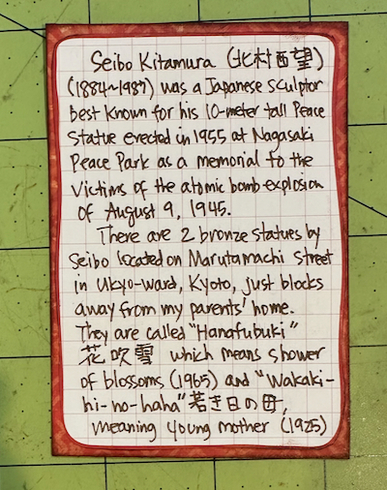 Seibo Kitamura (北村西望)
(1884~1987) was a Japanese sculptor
best known for his 10-meter tall Peace
Statue erected in 1955 at Nagasaki
Peace Park as a memorial to the
victims of the atomic bomb explosion
of August 9, 1945.
There are 2 bronze statues by
Seibo located on Marutamachi Street
in Ukyo-ward, Kyoto, just blocks
away from my parents' home.
They are called "Hanafubuki"
花吹雪 which means shower
of blossoms (1965) and "Wakaki-
hi-no-haha" 若き日の母,
meaning young mother (1975)